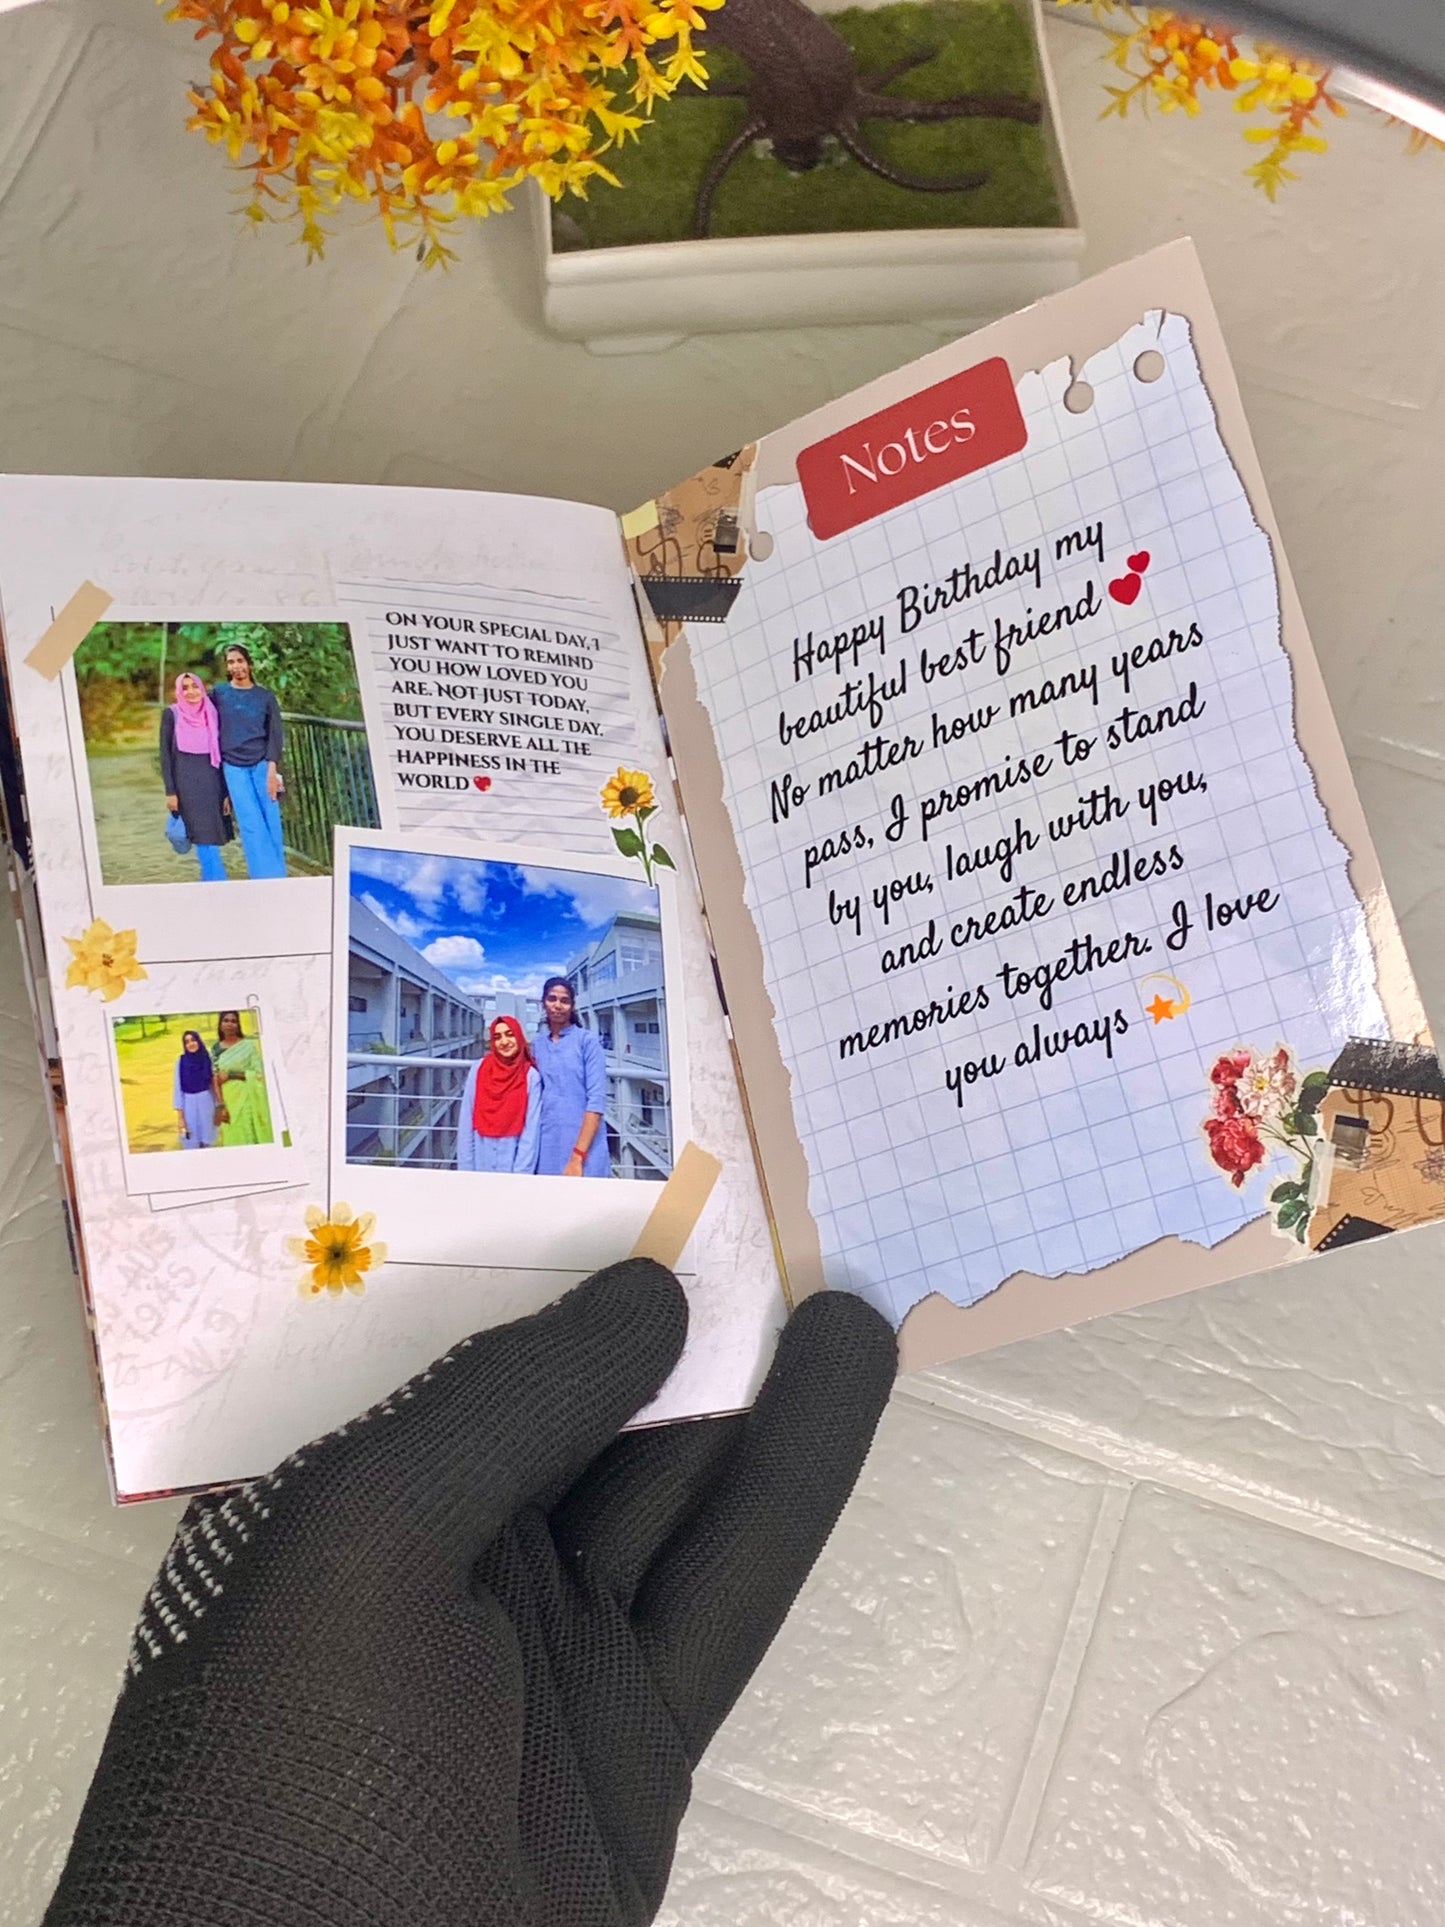 ON YOUR SPECIAL DAY, I
JUST WANT TO REMIND
YOU HOW LOVED YOU
ARE. NOT JUST TODAY,
BUT EVERY SINGLE DAY.
YOU DESERVE ALL THE
HAPPINESS IN THE
WORLD ❤️
Notes
Happy Birthday my
beautiful best friend 💕
No matter how many years
pass, I promise to stand
by you, laugh with you,
and create endless
memories together. I love
you always 💫